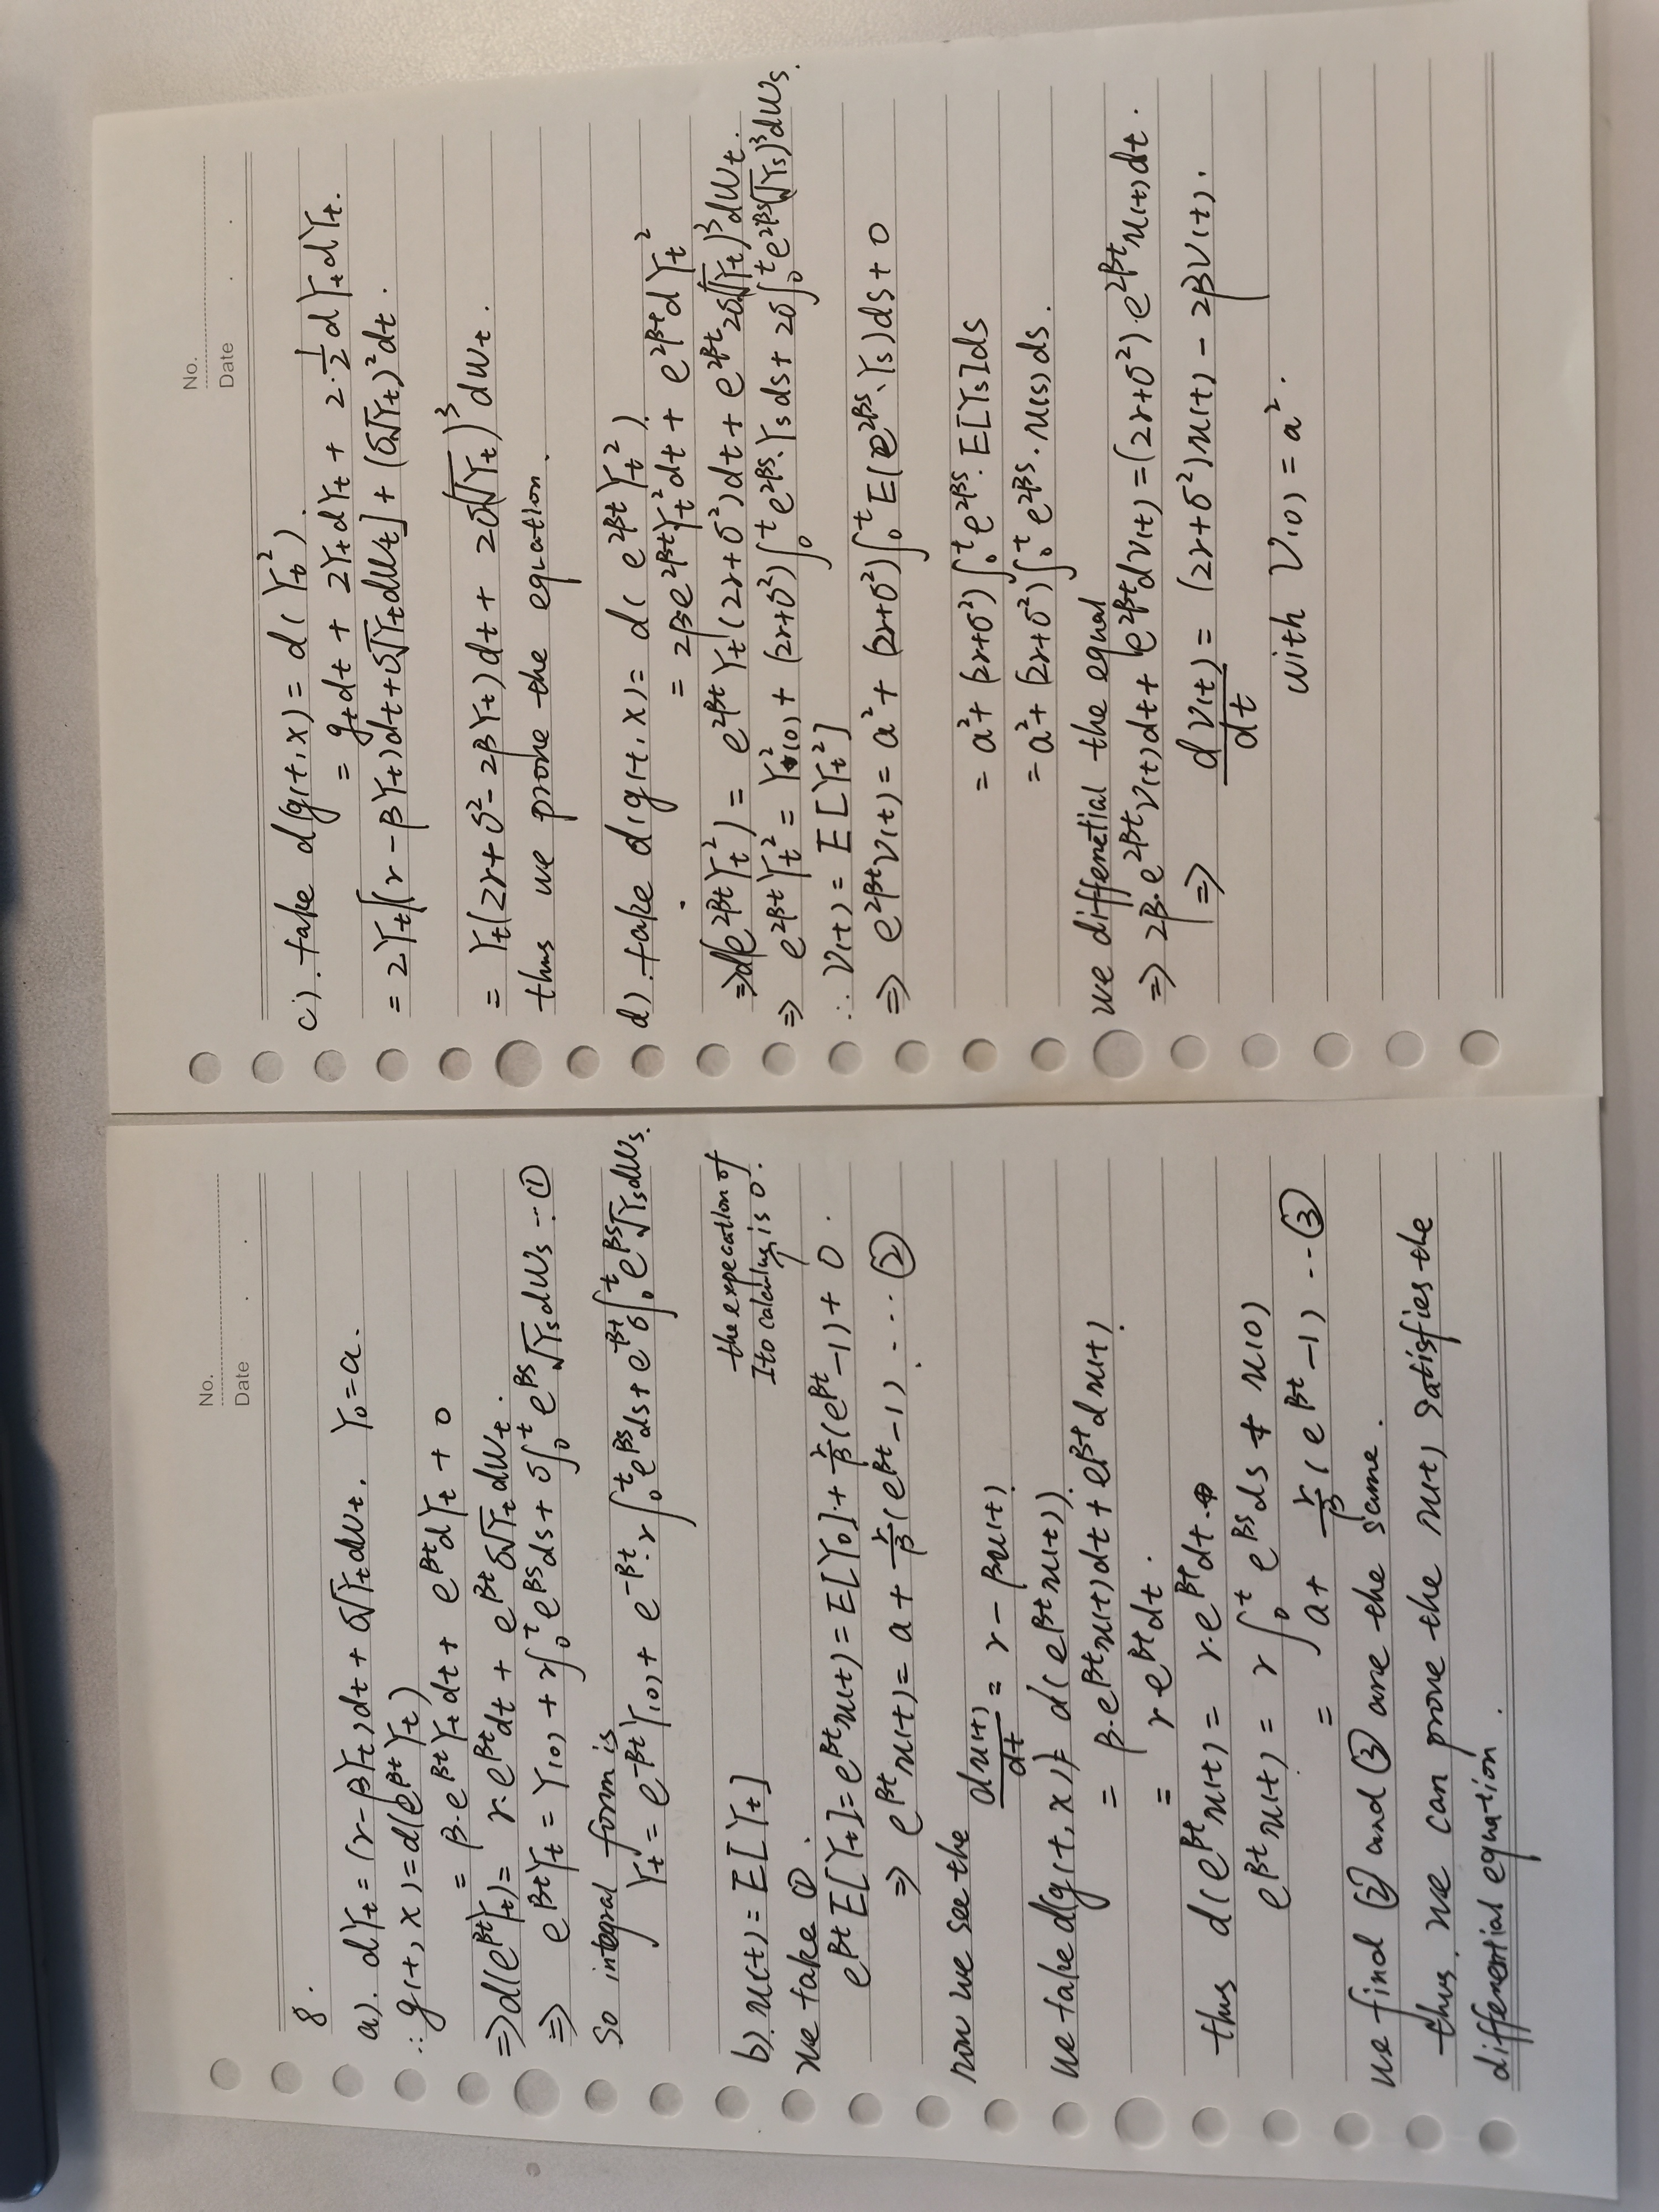 No.
Date . .
8.
a). dYt = (r-βYt)dt + σ√Yt dWt. Y0=a.
∴ g(t,x)=d(e^βt Yt)
= β·e^βt Yt dt + e^βt dYt + 0
=> d(e^βt Yt)= r·e^βt dt + e^βt σ√Yt dWt.
=> e^βt Yt = Y(0) + r∫₀^t e^βs ds + σ∫₀^t e^βs √Ys dWs ··①
So integral form is
Yt = e^-βt Y(0) + e^-βt·r∫₀^t e^βs ds + e^-βt σ∫₀^t e^βs √Ys dWs.
b). u(t) = E[Yt]
the expecation of
Ito calculus is 0.
↑
we take ①.
e^βt E[Yt]=e^βt u(t)=E[Y0]+ r/β(e^βt-1)+ 0.
=> e^βt u(t)= a + r/β(e^βt-1). ···②
now we see the
du(t)/dt = r - βu(t)
we take d(g(t,x)= d(e^βt u(t)).
= β·e^βt u(t)dt + e^βt du(t)
= r·e^βt dt.
thus d(e^βt u(t)= r·e^βt dt.
e^βt u(t) = r∫₀^t e^βs ds + u(0)
= a + r/β(e^βt-1) --③
we find ② and ③ are the same.
thus, we can prove the u(t) satisfies the
differential equation.
No.
Date . .
c). take d(g(t,x)= d(Yt²).
= gt dt + 2Yt dYt + 2·½ dYt dYt.
= 2Yt[(r-βYt)dt+σ√Yt dWt] + (σ√Yt)²dt.
= Yt(2r+σ²-2βYt)dt + 2σ(√Yt)³dWt.
thus we prove the equation.
d). take d(g(t,x)= d(e^2βt Yt²).
= 2β·e^2βt Yt² dt + e^2βt dYt²
=> d(e^2βt Yt²) = e^2βt Yt(2r+σ²)dt + e^2βt 2σ(√Yt)³dWt.
=> e^2βt Yt² = Y²(0) + (2r+σ²)∫₀^t e^2βs·Ys ds + 2σ∫₀^t e^2βs(√Ys)³dWs.
∴ V(t) = E[Yt²]
=> e^2βt V(t)= a² + (2r+σ²)∫₀^t E(e^2βs·Ys)ds + 0
= a² + (2r+σ²)∫₀^t e^2βs·E[Ys]ds
= a² + (2r+σ²)∫₀^t e^2βs·u(s)ds.
we diffenetial the equal
=> 2β·e^2βt V(t)dt + e^2βt dV(t) = (2r+σ²)·e^2βt u(t)dt.
=> dV(t)/dt = (2r+σ²)u(t) - 2βV(t).
with V(0) = a².